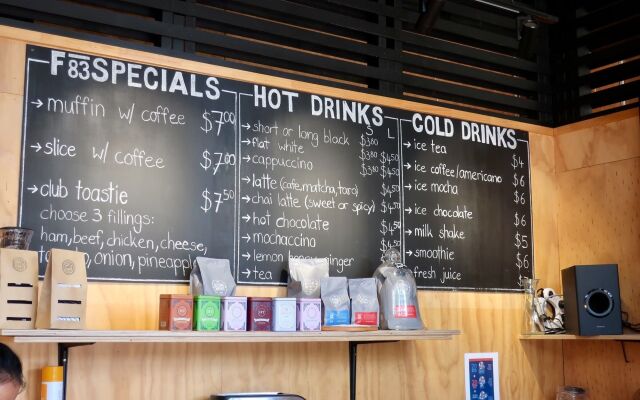 F83 SPECIALS
→ muffin w/ coffee $7.00
→ slice w/ coffee $7.00
→ club toastie $7.50
choose 3 fillings:
ham, beef, chicken, cheese,
onion, pineapple
HOT DRINKS
S L
→ short or long black $3.80
→ flat white $3.80 $4.50
→ cappuccino $3.80 $4.50
→ latte (cafe, matcha, taro) $4.50
→ chai latte (sweet or spicy) $4.50
→ hot chocolate $4.50
→ mochaccino $4.50
→ lemon honey ginger
→ tea
COLD DRINKS
→ ice tea $4
→ ice coffee/americano $6
→ ice mocha $6
→ ice chocolate $6
→ milk shake $5
→ smoothie $6
→ fresh juice